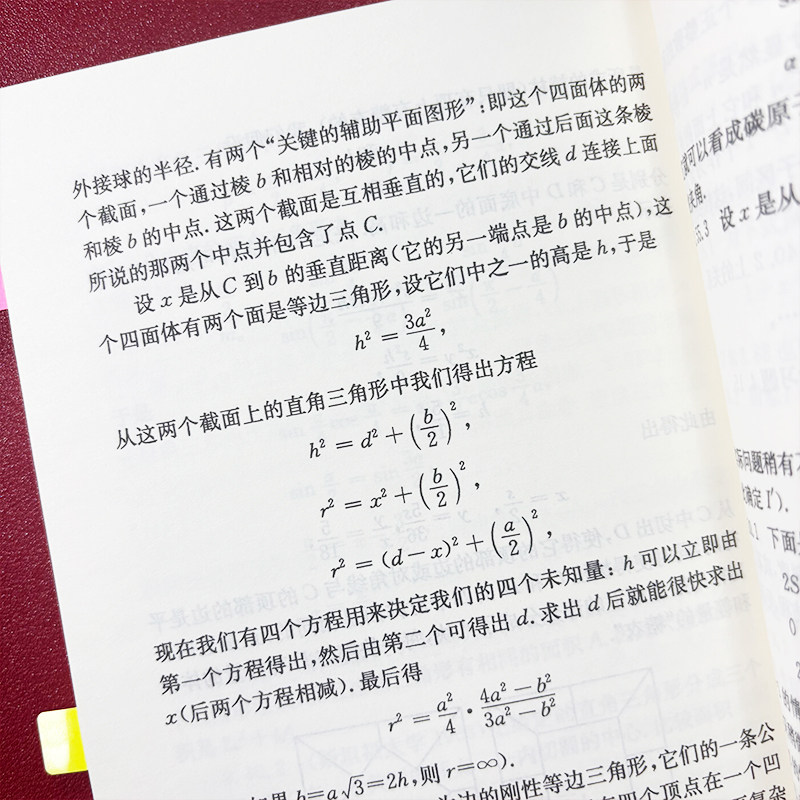 外接球的半径. 有两个“关键的辅助平面图形”: 即这个四面体的两
个截面, 一个通过棱 b 和相对的棱的中点, 另一个通过后面这条棱
和棱 b 的中点. 这两个截面是互相垂直的, 它们的交线 d 连接上面
所说的那两个中点并包含了点 C.
设 x 是从 C 到 b 的垂直距离(它的另一端点是 b 的中点), 这
个四面体有两个面是等边三角形, 设它们中之一的高是 h, 于是
h² = 3a²/4,
从这两个截面上的直角三角形中我们得出方程
h² = d² + (b/2)²,
r² = x² + (b/2)²,
r² = (d − x)² + (a/2)²,
现在我们有四个方程用来决定我们的四个未知量: h 可以立即由
第一个方程得出, 然后由第二个可得出 d. 求出 d 后就能很快求出
x(后两个方程相减). 最后得
r² = a²/4 · (4a² − b²)/(3a² − b²)
b = a√3 = 2h, 则 r = ∞).
为边的刚性等边三角形, 它们的一条公
四个顶点在一个凹
可以看成碳原
设 x 是从
际问题稍有
确定 I′).
下面
2S
0